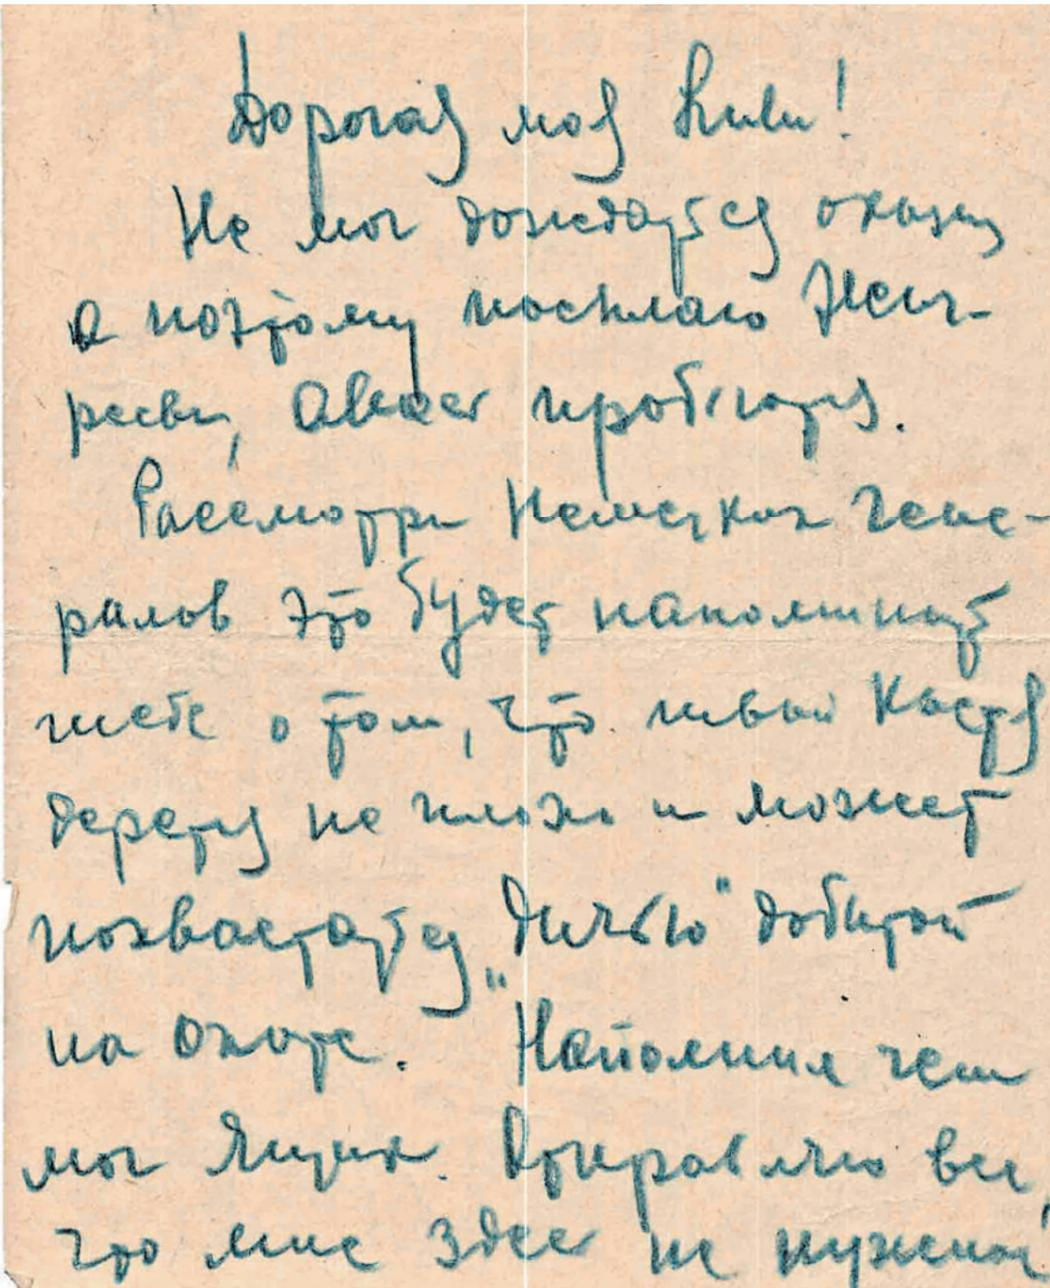 Дорогая моя Лили!
Не мог дождаться оказии
а поэтому посылаю Экс-
авось пробьются.
Рассмотри Немецких гене-
ралов это будет напоминать
тебе о том, что твой Костя
дерется не плохо и может
похвастаться „дичью" добытой
на охоте. Наполнил чем
мог ящик. Отправляю все,
что мне здесь не нужно